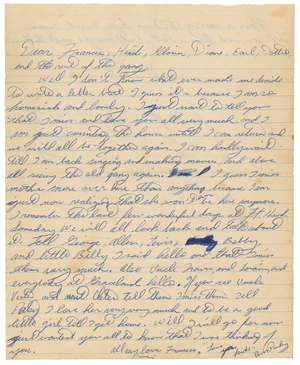 Dear Frances, Heidi, Gloria, Diane, Earl, Dottie
and the rest of the gang,
Well I don't know what ever made me decide
to write a letter but I guess it's because I am so
homesick and lonely. I just want to tell you
that I miss and love you all very much and I
am just counting the hours until I can return and
we will all be together again. I can hardly wait
till I am back singing and making movies. And above
all seeing the old gang again. I guess I miss
mother more ever than anything because I am
just now realizing that she won't be here anymore.
I remember the last few wonderful days at Ft. Hood.
Someday we will all look back and talk about
it. Tell George, Allen, Bobby
and little Billy I said hello and that I miss
them very much. Also Uncle and
everybody at Graceland hello. If you see Uncle
and tell them I miss them. Tell
I love her very very much and to be a good
little girl till I get home. Well I will go for now
just wanted you all to know that I was thinking of
you. all my love Frances,
Elvis Presley